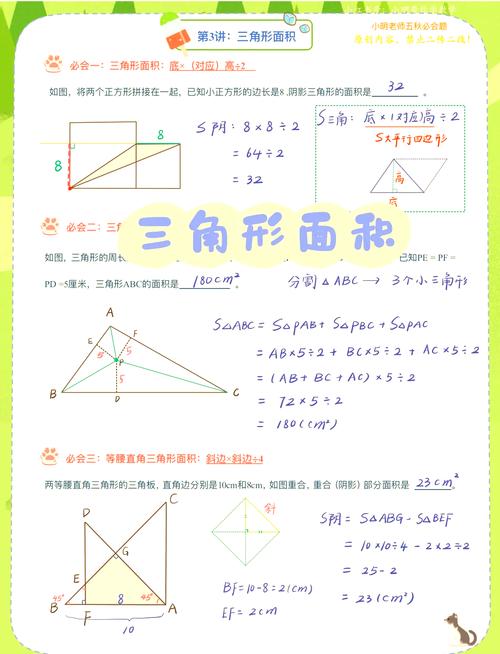 第3讲：三角形面积
小明老师五秋必会题
原创内容，禁止二传二改！
必会一：三角形面积：底×（对应）高÷2
如图，将两个正方形拼接在一起，已知小正方形的边长是8,阴影三角形的面积是 32 。
8
8
S阴：8×8÷2
=64÷2
=32
S三角：底×1对应高÷2
S大平行四边形
高
底
必会二：三角
三角形面积
如图，三角形的周长
已知PE = PF =
PD =5厘米，三角形ABC的面积是 180cm² 。
分割△ABC→3个小三角形
A
E
F
5
5
P
5
B
D
C
S△ABC = S△PAB + S△PBC + S△PAC
= AB×5÷2 + BC×5÷2 + AC×5÷2
= (AB+BC+AC)×5÷2
= 72×5÷2
= 180(cm²)
必会三：等腰直角三角形面积：斜边×斜边÷4
两等腰直角三角形的三角板，直角边分别是10cm和8cm，如图重合，重合（阴影）部分面积是 23cm² 。
C
D
G
E
45°
8
45°
B
F
A
10
斜
BF=10-8=2(cm)
EF=2cm
S阴= S△ABG - S△BEF
= 10×10÷4 - 2×2÷2
= 25-2
= 23(cm²)